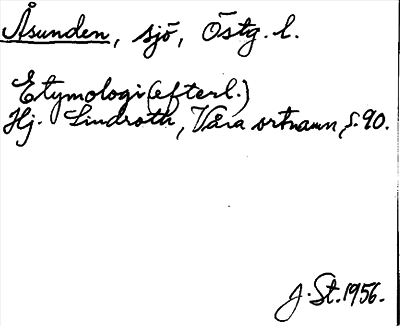 Åsunden, sjö, Östg. l.
Etymologi (efterl.)
Hj. Lindroth, Våra ortnamn, s. 90.
J. St. 1956.